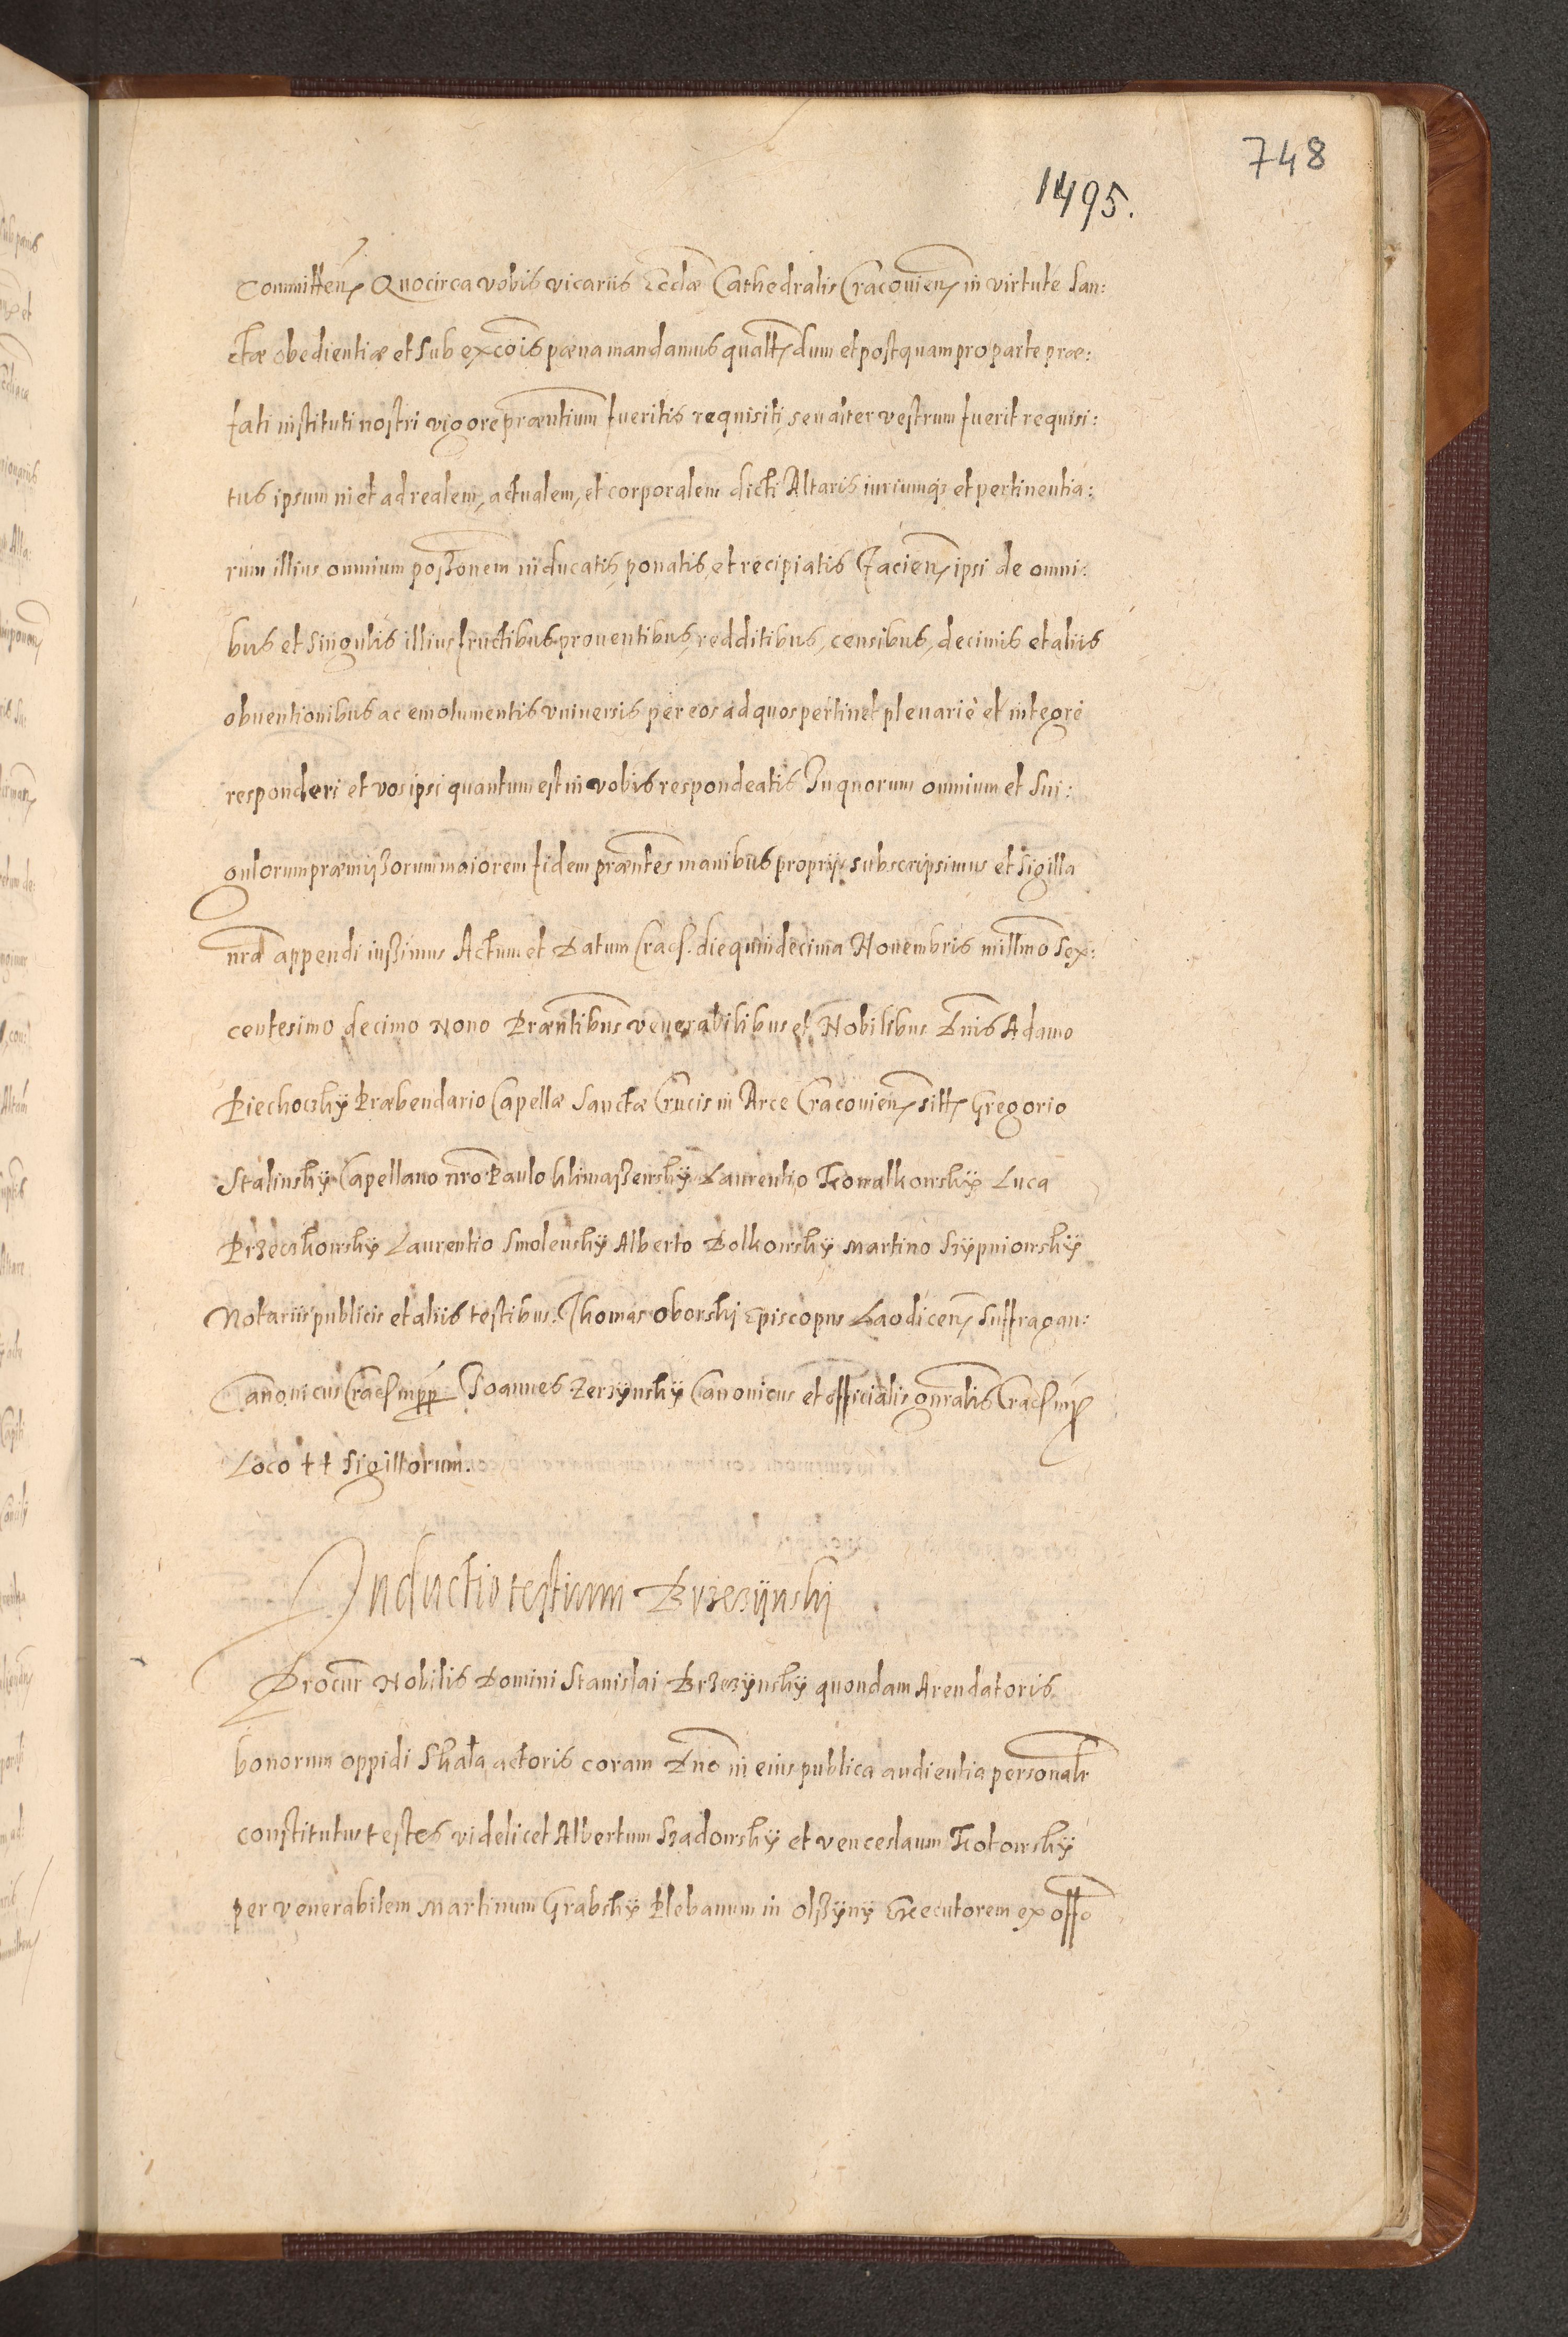 748
1495.
Committen. Quocirca vobis vicariis Eccłæ Cathedralis Cracouien. in virtute San:
ctæ obedientiæ et sub excōis pœna mandamus qualtt. dum et postquam pro parte præ:
fati instituti nostri vigore præntium fueritis requisiti, seu alter vestrum fuerit requisi:
tus ipsum in et ad realem, actualem, et corporalem dicti Altaris iuriumq; et pertinentia:
rum illius omnium poßonem inducatis, ponatis, et recipiatis Facien. ipsi de omni:
bus et singulis illius fructibus prouentibus, redditibus, censibus, decimis et aliis
obuentionibus ac emolumentis vniuersis per eos ad quos pertinet plenariè et integrè
responderi et vos ipsi quantum est in vobis respondeatis In quorum omnium et Sin:
gulorum præmißorum maiorem fidem præntes manibus proprijs subscripsimus et Sigilla
nra appendi iußimus Actum et Datum Crac. die quindecima Nouembris millmo Sex:
centesimo decimo Nono Præntibus venerabilibus et Nobilibus Dnis Adamo
Piechocsky Præbendario Capellæ Sanctæ Crucis in Arce Cracouien. sitt. Gregorio
Stalinsky Capellano nro Paulo Klimaßewsky Laurentio Kowalkowsky Luca
Przeczkowsky Laurentio Smolensky Alberto Dolkowsky Martino Szypniowsky
Notariis publicis et aliis testibus. Thomas Oborski Episcopus Laodicen. Suffragan:
Canonicus Crac. mpp. Joannes Zerzynsky Canonicus et officialis gnralis Crac. mp.
Loco ++ Sigillorum.
Inductio testium Brzezynski
Procur Nobilis Domini Stanislai Brzezynsky quondam Arendatoris
bonorum oppidi Skała, actoris coram Dno in eius publica audientia personalr
constitutus testes videlicet Albertum Szadowsky et venceslaum Kotowsky
per venerabilem Martinum Grabsky Plebanum in Olßyny Executorem ex offo